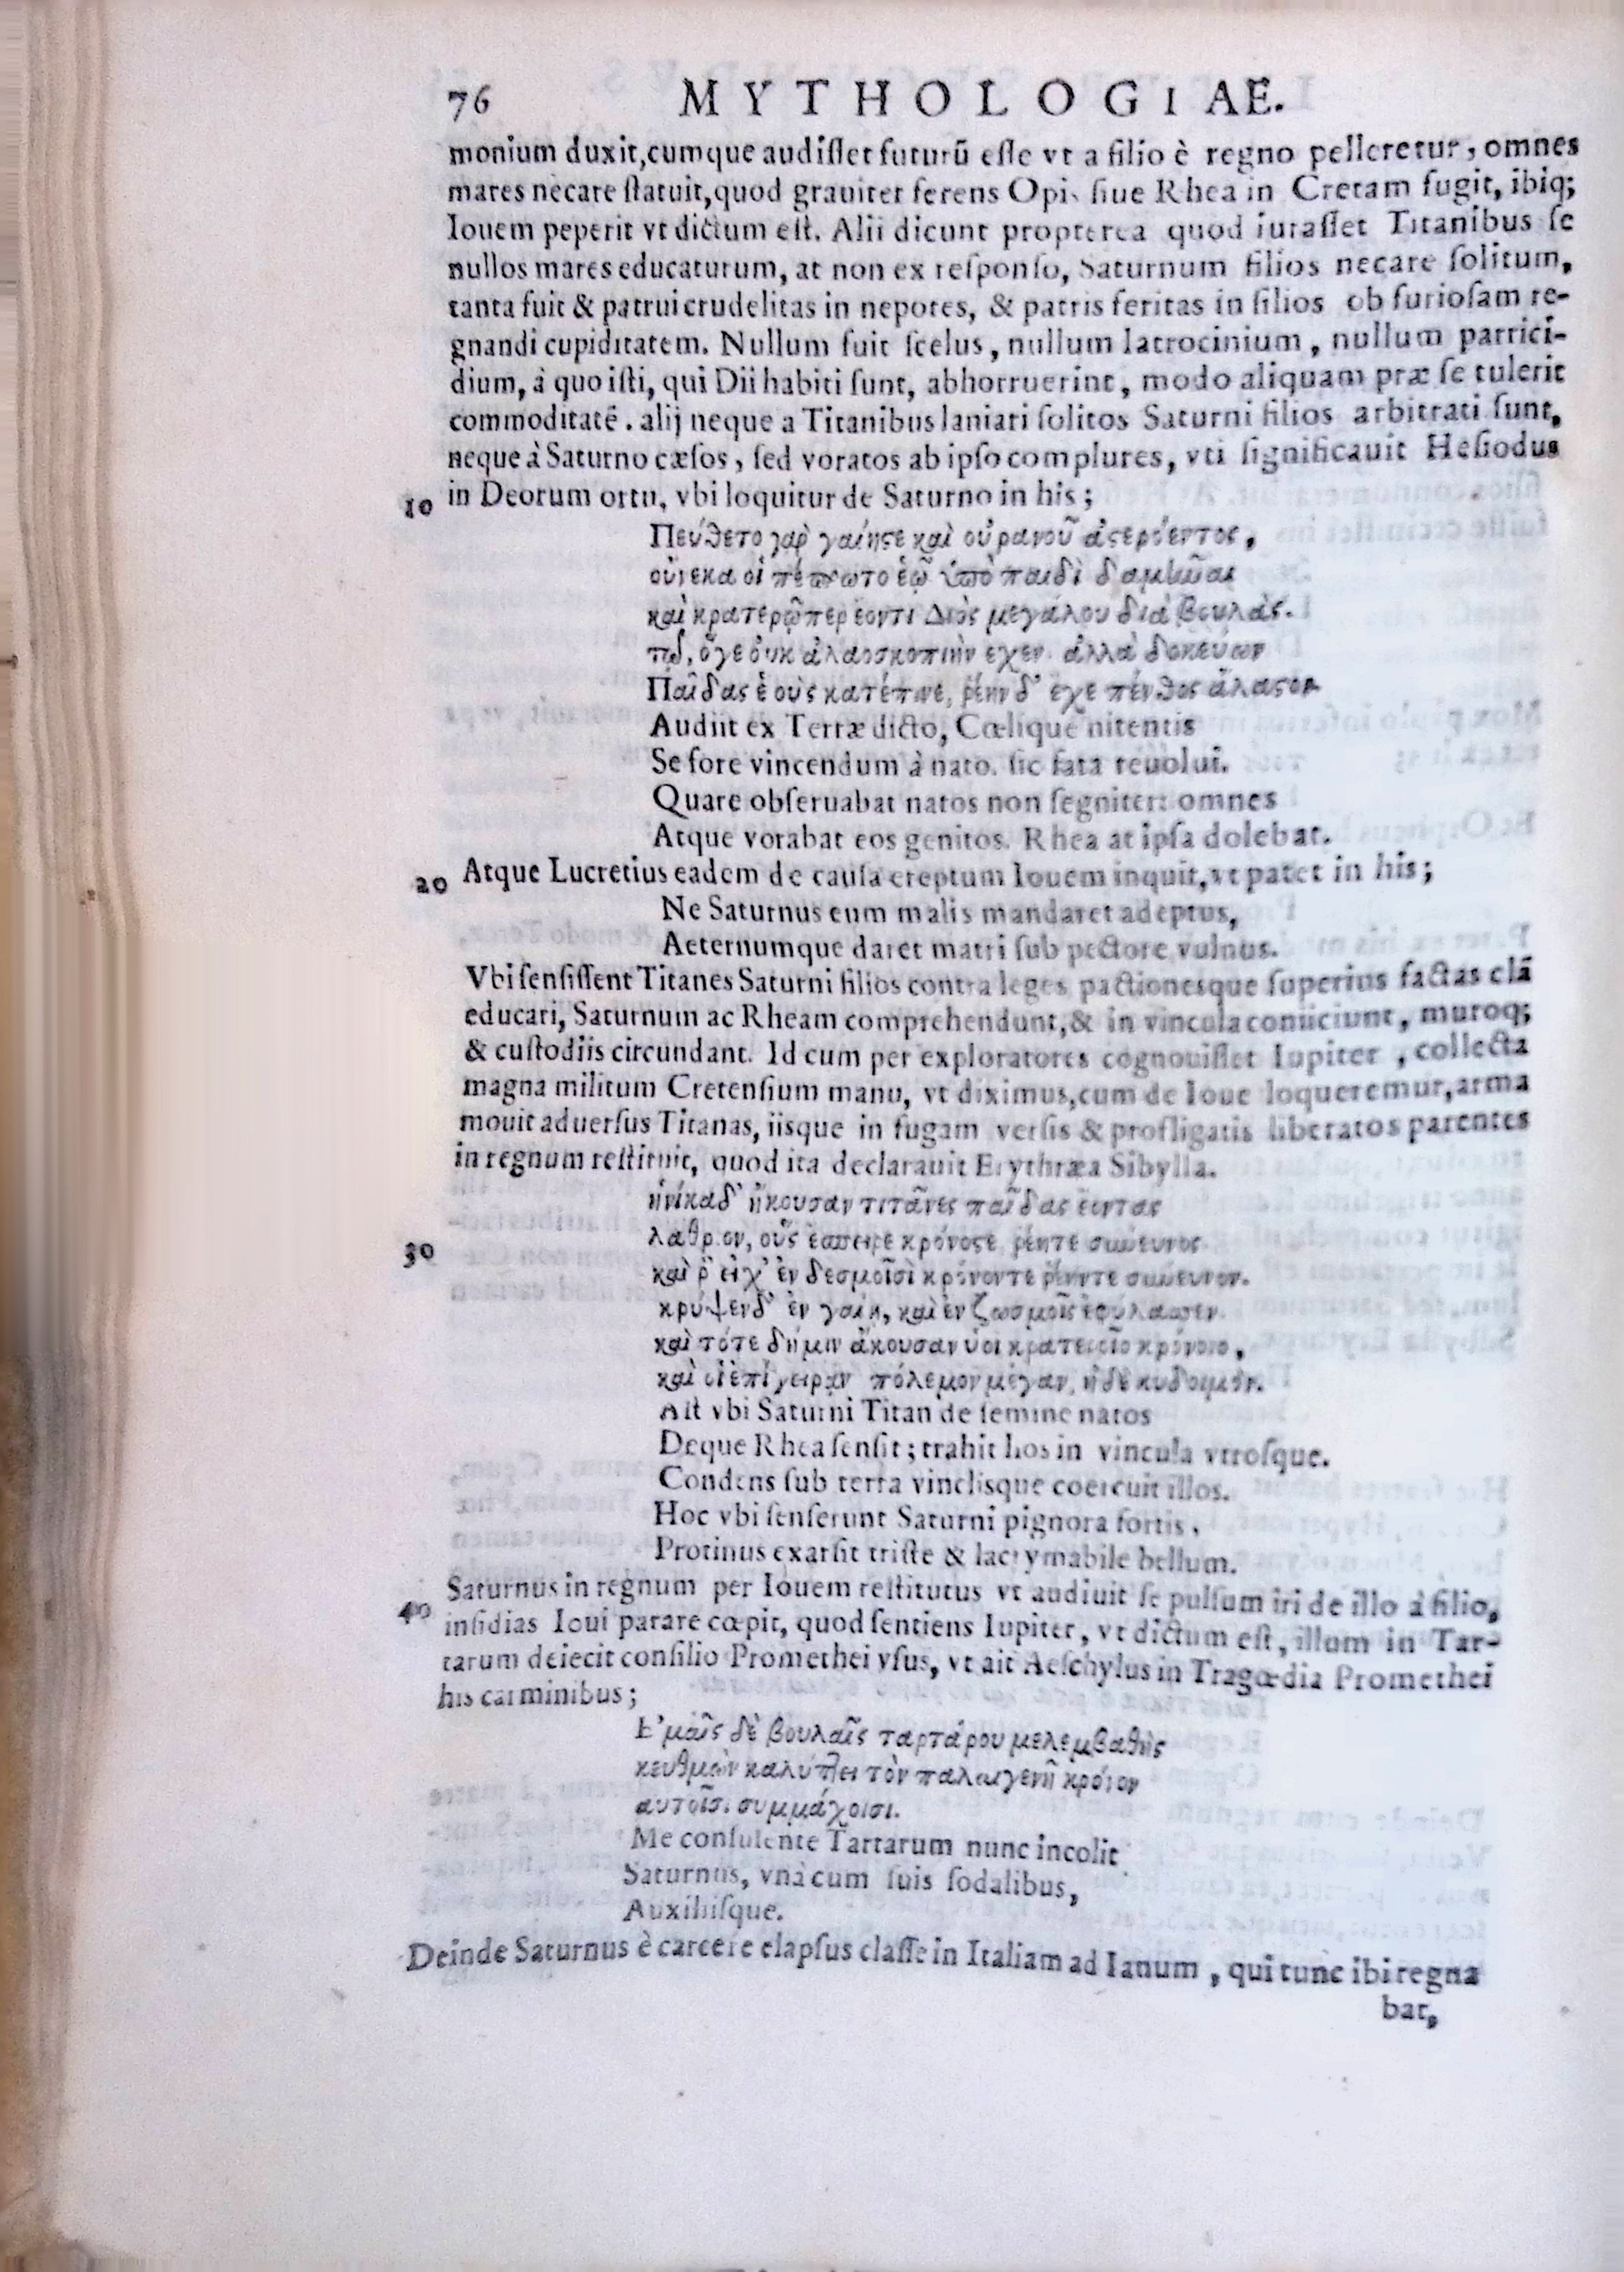 76 MYTHOLOGIAE.
monium duxit, cumque audiſſet futurũ eſſe vt a filio è regno pelleretur, omnes
mares necare ſtatuit, quod grauiter ferens Opis ſiue Rhea in Cretam fugit, ibiq;
Iouem peperit vt dictum eſt. Alii dicunt propterea quod iuraſſet Titanibus ſe
nullos mares educaturum, at non ex reſponſo, Saturnum filios necare ſolitum,
tanta fuit & patrui crudelitas in nepotes, & patris feritas in filios ob furioſam re-
gnandi cupiditatem. Nullum fuit ſcelus, nullum latrocinium, nullum parrici-
dium, à quo iſti, qui Dii habiti ſunt, abhorruerint, modo aliquam præ ſe tulerit
commoditatẽ. alij neque a Titanibus laniari ſolitos Saturni filios arbitrati ſunt,
neque à Saturno cæſos, ſed voratos ab ipſo complures, vti ſignificauit Heſiodus
10 in Deorum ortu, vbi loquitur de Saturno in his;
Πεύθετο γαρ̀ γαίης τε καὶ οὐρανοῦ ἀςερόεντος,
οὕνεκα οἱ πέπρωτο ἑῷ ὑπὸ παιδὶ δαμῆναι
καὶ κρατερῷ περ ἐόντι Διὸς μεγάλου διὰ βουλὰς.
τῷ, ὅγε οὐκ ἀλαοσκοπιὴν ἔχεν. ἀλλὰ δοκεύων
Παῖδας ἑοὺς κατέπινε, ῥέην δ' ἔχε πένθος ἄλαςον
Audiit ex Terræ dicto, Cœlique nitentis
Se fore vincendum à nato. ſic fata reuolui.
Quare obſeruabat natos non ſegniter: omnes
Atque vorabat eos genitos. Rhea at ipſa dolebat.
20 Atque Lucretius eadem de cauſa ereptum Iouem inquit, vt patet in his;
Ne Saturnus eum malis mandaret adeptus,
Aeternumque daret matri ſub pectore vulnus.
Vbi ſenſiſſent Titanes Saturni filios contra leges pactionesque ſuperius factas clã
educari, Saturnum ac Rheam comprehendunt, & in vincula coniiciunt, muroq;
& cuſtodiis circundant. Id cum per exploratores cognouiſſet Iupiter, collecta
magna militum Cretenſium manu, vt diximus, cum de Ioue loqueremur, arma
mouit aduerſus Titanas, iisque in fugam verſis & profligatis liberatos parentes
in regnum reſtituit, quod ita declarauit Erythræa Sibylla.
ἡνίκα δ' ἤκουσαν τιτᾶνες παῖδας ἐόντας
30 λάθριον, οὓς ἔσπειρε κρόνος τε ῥέητε σύνευνος
καὶ ῥ' εἰχ' ἐν δεσμοῖσὶ κρόνοντε ῥέηντε σύνευνον.
κρύψεν δ' ἐν γαίη, καὶ ἐν ζωσμοῖς ἐφύλασσεν.
καὶ τότε δή μιν ἄκουσαν ὑοι κρατεροῖο κρόνοιο,
καὶ οἱ ἐπήγειραν πόλεμον μέγαν, ἠδὲ κυδοιμόν.
Aſt vbi Saturni Titan de ſemine natos
Deque Rhea ſenſit; trahit hos in vincula vtroſque.
Condens ſub terra vinclisque coercuit illos.
Hoc vbi ſenſerunt Saturni pignora fortis,
Protinus exarſit triſte & lacrymabile bellum.
Saturnus in regnum per Iouem reſtitutus vt audiuit ſe pulſum iri de illo à filio,
40 inſidias Ioui parare cœpit, quod ſentiens Iupiter, vt dictum eſt, illum in Tar-
tarum deiecit conſilio Promethei vſus, vt ait Aeſchylus in Tragœdia Promethei
his carminibus;
Ε'μαῖς δὲ βουλαῖς ταρτάρου μελεμβαθὴς
κευθμὼν καλύπτει τὸν παλαιγενῆ κρόνον
αυτοῖσι συμμάχοισι.
Me conſulente Tartarum nunc incolit
Saturnus, vnà cum ſuis ſodalibus,
Auxiliiſque.
Deinde Saturnus è carcere elapſus claſſe in Italiam ad Ianum, qui tunc ibi regna
bat,